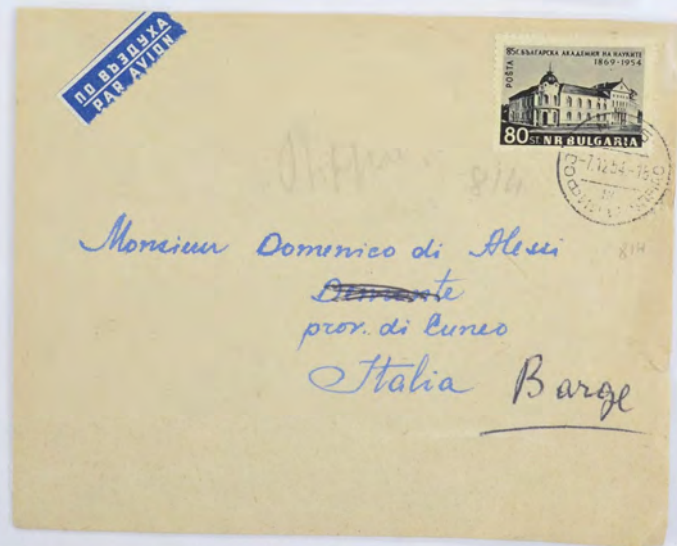 ПО ВЪЗДУХА
PAR AVION
85 Г. БЪЛГАРСКА АКАДЕМИЯ НА НАУКИТЕ
1869-1954
POŠTA
80 ST. N R BULGARIA
-7.12.54-18
8/4
Monsieur Domenico di Alessi
8/4
prov. di Cuneo
Italia Barge